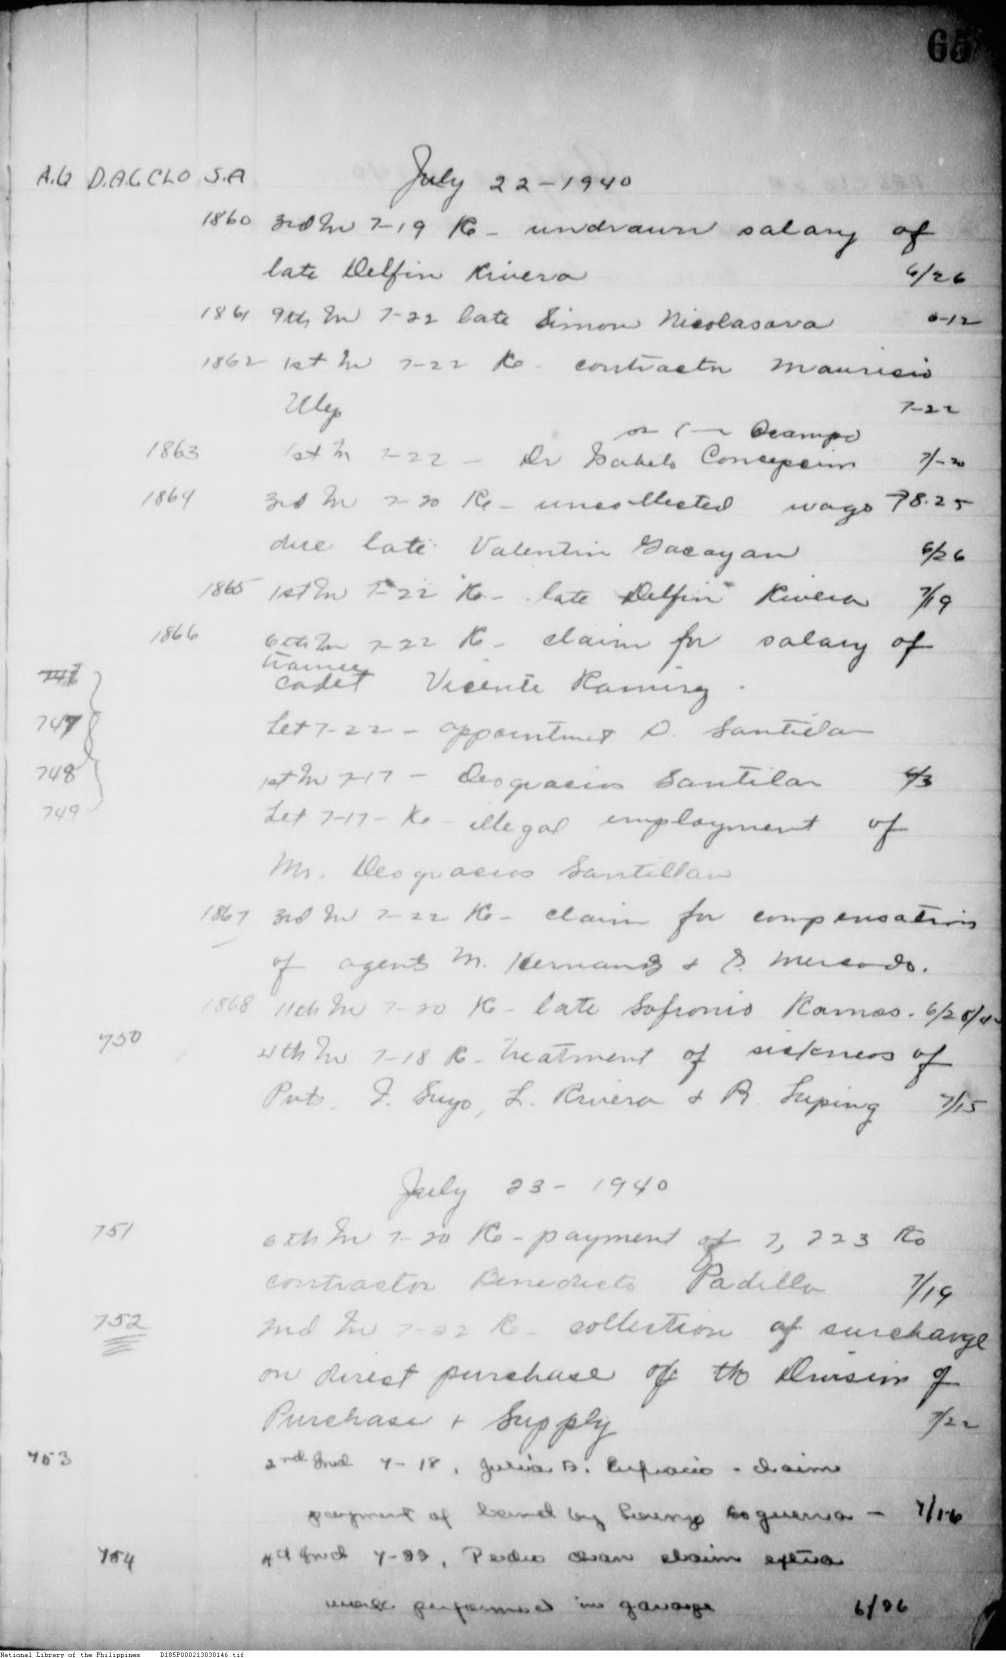 65
A.G D.A.G CLO S.A July 22-1940
1860 3rd In 7-19 Re- undrawn salary of
late Delfin Rivera 6/26
1861 9th In 7-22 late Simon Nicolasava 6-12
1862 1st In 7-22 Re- contractor Mauricio
Ulep 7-22
or Ocampo
1863 1st In 7-22 - Dr Isabelo Concepcion 7/-20
1864 3rd In 7-20 Re- uncollected wages ₱8.25
due late Valentin Gacayan 6/26
1865 1st In 7-22 Re- late Delfin Rivera 7/19
1866 6th In 7-22 Re- claim for salary of
trainee
cadet Vicente Ramirez.
747 Let 7-22- appointment D. Santilan
748 1st In 7-17 - Deogracias Santilan 6/3
749 Let 7-17- Re- illegal employment of
Mr. Deogracias Santillan
1867 3rd In 7-22 Re- claim for compensation
of agents M. Hernandez & S. Mercado.
1868 11th In 7-20 Re- late Sofronio Ramos. 6/28/40
750 4th In 7-18 Re- treatment of sickness of
Pvts. F. Suyo, L. Rivera & R. Suping 7/15
July 23-1940
751 6th In 7-20 Re- payment of 7,223 to
contractor Benedicto Padilla 7/19
752 2nd In 7-22 Re- collection of surcharge
on direct purchase of the Division of
Purchase & Supply 7/22
753 2nd Ind 7-18, Julia B. Eufracio - claim
payment of land by Lorenzo Boquerva - 7/16
754 4th Ind 7-22, Pedro claim extra
work performed in garage 6/26
National Library of the Philippines D185P000213030146.tif